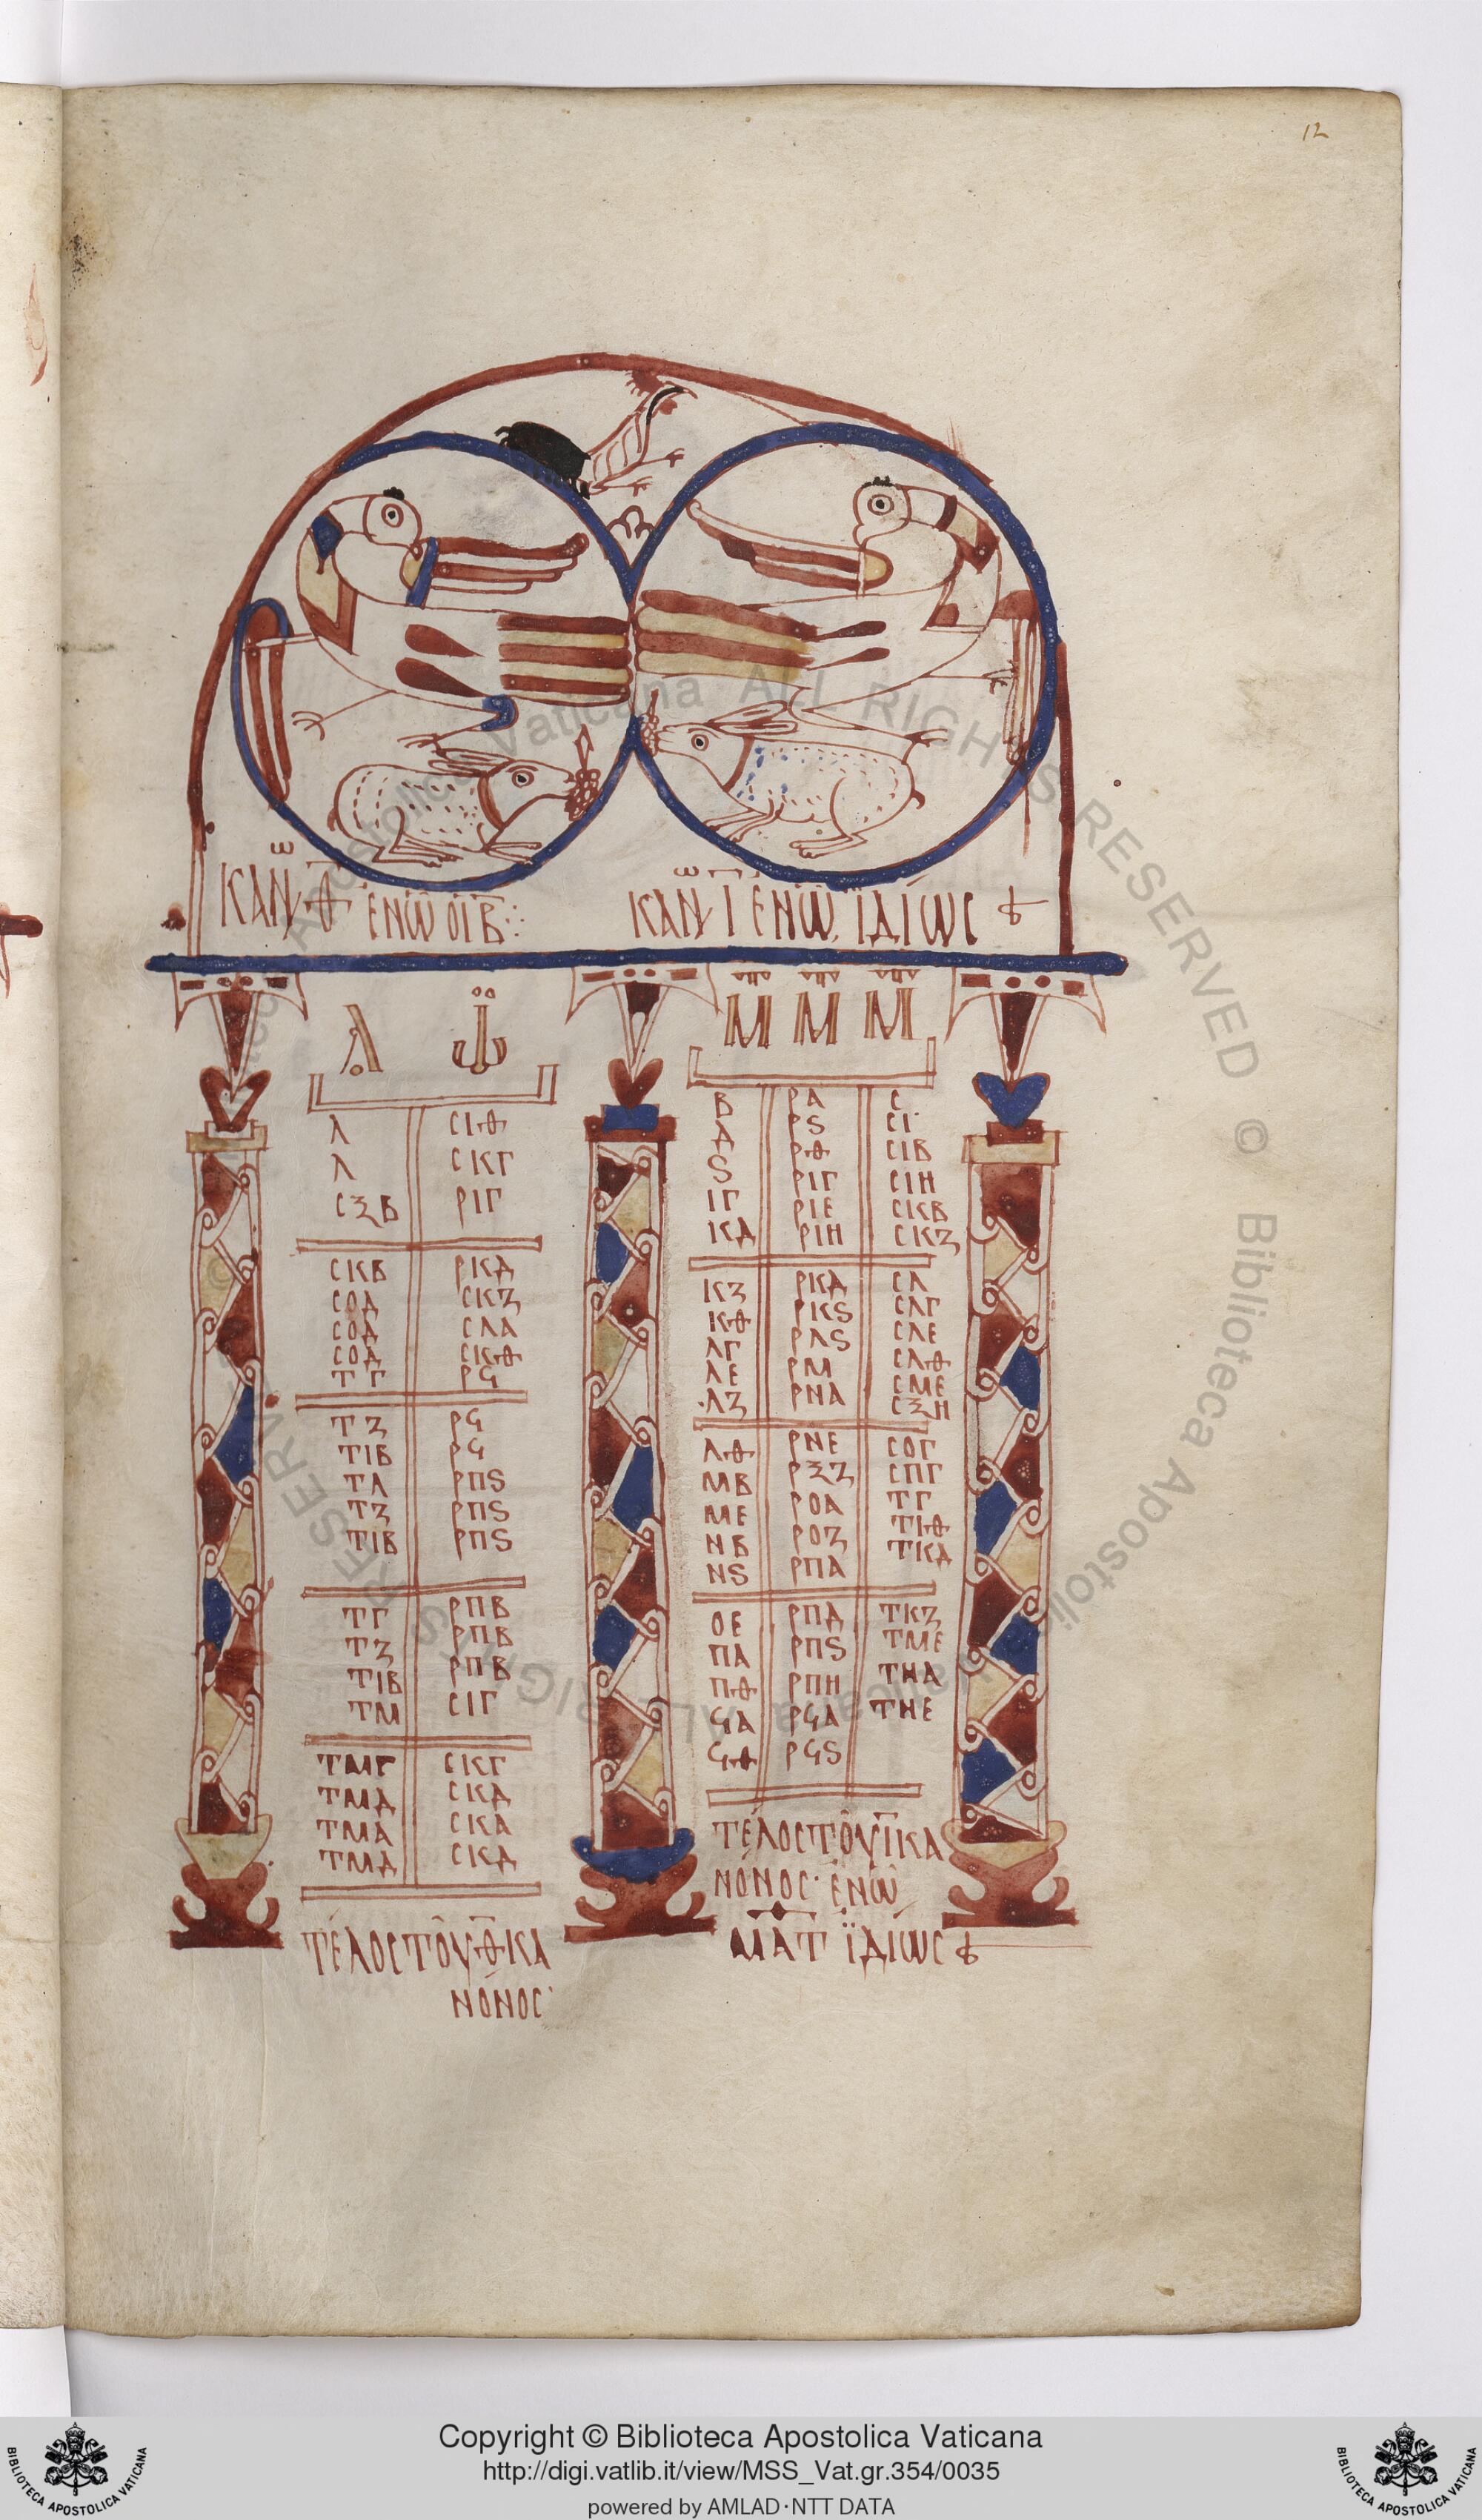 12
ΚΑΝω Θ ΕΝ Ω ΟΙ Β
ΚΑΝω Ι ΕΝ Ω ΪΔΙΩC
Λ ΙΩ
Μ Μ Μ
Λ CΙΘ
Λ CΚΓ
CΞΒ ΡΙΓ
CΚΒ ΡΚΔ
CΟΔ CΚΖ
CΟΔ CΛΑ
CΟΔ CΚΘ
ΤΓ ΡϞ
ΤΖ ΡϞ
ΤΙΒ ΡϞ
ΤΛ ΡΠS
ΤΖ ΡΠS
ΤΙΒ ΡΠS
ΤΓ ΡΠΒ
ΤΖ ΡΠΒ
ΤΙΒ ΡΠΒ
ΤΜ CΙΓ
ΤΜΓ CΚΓ
ΤΜΔ CΚΔ
ΤΜΑ CΚΑ
ΤΜΔ CΚΔ
ΤΕΛΟC ΤΟΥ Θ ΚΑ
ΝΟΝΟC
Β ΡΑ C
Δ ΡS CΙ
S ΡΘ CΙΒ
ΙΓ ΡΙΓ CΙΗ
ΚΔ ΡΙΕ CΚΒ
ΡΙΗ CΚΖ
ΚΖ ΡΚΔ CΛ
ΚΘ ΡΚS CΛΓ
ΛΓ ΡΛS CΛΕ
ΛΕ ΡΜ CΛΘ
ΛΖ ΡΝΑ CΜΕ
CΞΗ
ΛΘ ΡΝΕ CΟΓ
ΜΒ ΡΞΖ CΠΓ
ΜΕ ΡΟΑ ΤΓ
ΝΒ ΡΟΖ ΤΙΘ
ΝS ΡΠΑ ΤΚΔ
ΟΕ ΡΠΔ ΤΚΖ
ΠΑ ΡΠS ΤΜΕ
ΠΘ ΡΠΗ ΤΝΑ
ϞΑ ΡϞΑ ΤΝΕ
ϞΘ ΡϞS
ΤΕΛΟC ΤΟΥ Ι ΚΑ
ΝΟΝΟC· ΕΝ Ω
ΜΑΤ ΪΔΙΩC
Copyright © Biblioteca Apostolica Vaticana
http://digi.vatlib.it/view/MSS_Vat.gr.354/0035
powered by AMLAD·NTT DATA
BIBLIOTECA APOSTOLICA VATICANA
BIBLIOTECA APOSTOLICA VATICANA